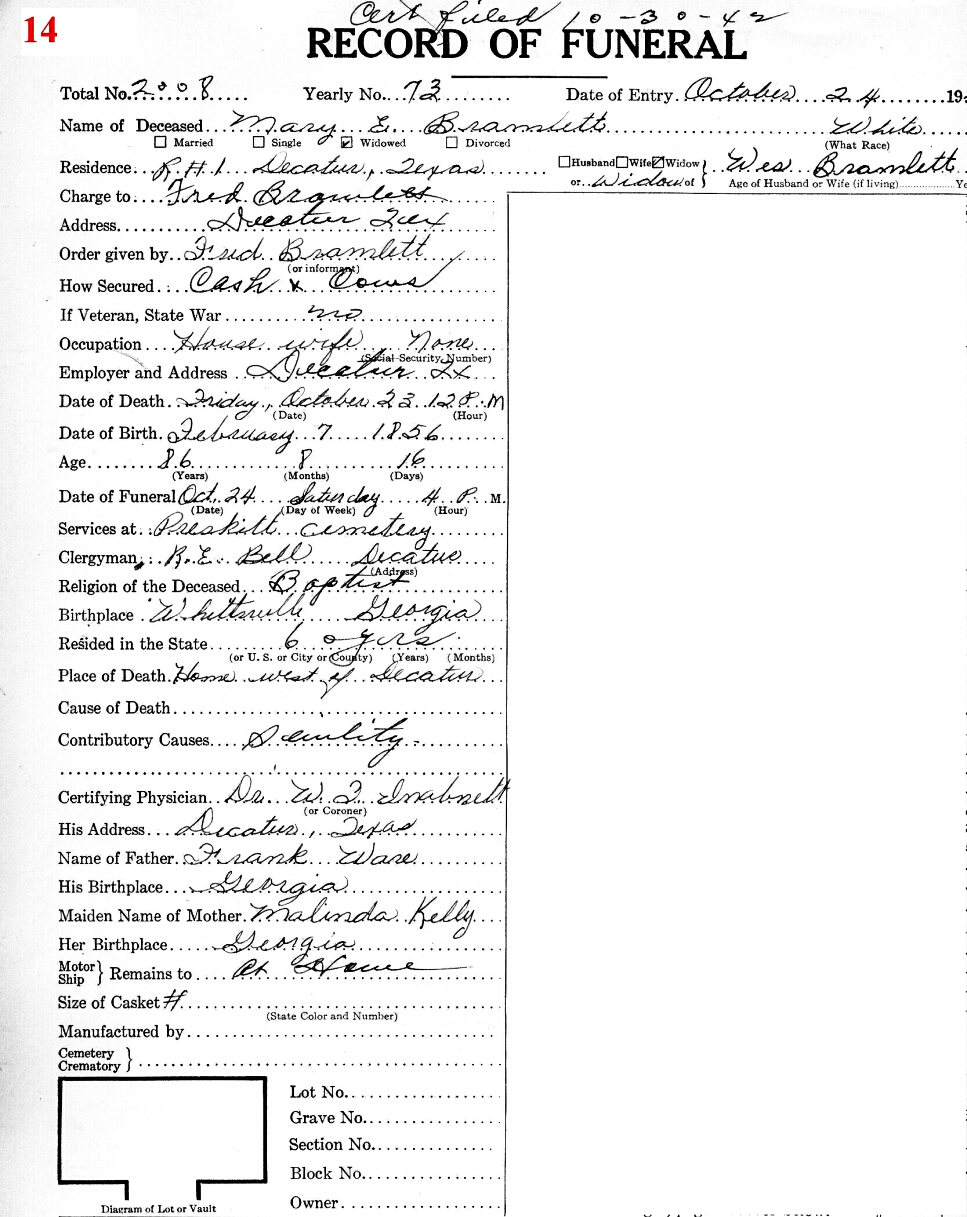 14
Cert filed 10-30-42
RECORD OF FUNERAL
Total No. 2008 Yearly No. 73 Date of Entry October 24 19
Name of Deceased Mary E. Bramlett White
☐ Married ☐ Single ☑ Widowed ☐ Divorced (What Race)
Residence R.H.1. Decatur, Texas ☐ Husband ☐ Wife ☑ Widow or Widow of } Wes Bramlett
Age of Husband or Wife (if living)
Charge to Fred Bramlett
Address Decatur Tex
Order given by Fred Bramlett
(or informant)
How Secured Cash x Cows
If Veteran, State War no
Occupation House wife None
(Social Security Number)
Employer and Address Decatur Tx
Date of Death Friday, October 23 12 P. M
(Date) (Hour)
Date of Birth February 7 1856
Age 86 8 16
(Years) (Months) (Days)
Date of Funeral Oct. 24 Saturday 4 P. M.
(Date) (Day of Week) (Hour)
Services at Preskitt cemetery
Clergyman R.E. Bell Decatur
(Address)
Religion of the Deceased Baptist
Birthplace Georgia
Resided in the State 60 yrs
(or U. S. or City or County) (Years) (Months)
Place of Death Home west of Decatur
Cause of Death
Contributory Causes Senility
Certifying Physician Dr. W. F. Inabnett
(or Coroner)
His Address Decatur, Texas
Name of Father Frank Ware
His Birthplace Georgia
Maiden Name of Mother Malinda Kelly
Her Birthplace Georgia
Motor Ship } Remains to At Home
Size of Casket #
(State Color and Number)
Manufactured by
Cemetery
Crematory }
Lot No.
Grave No.
Section No.
Block No.
Diagram of Lot or Vault Owner